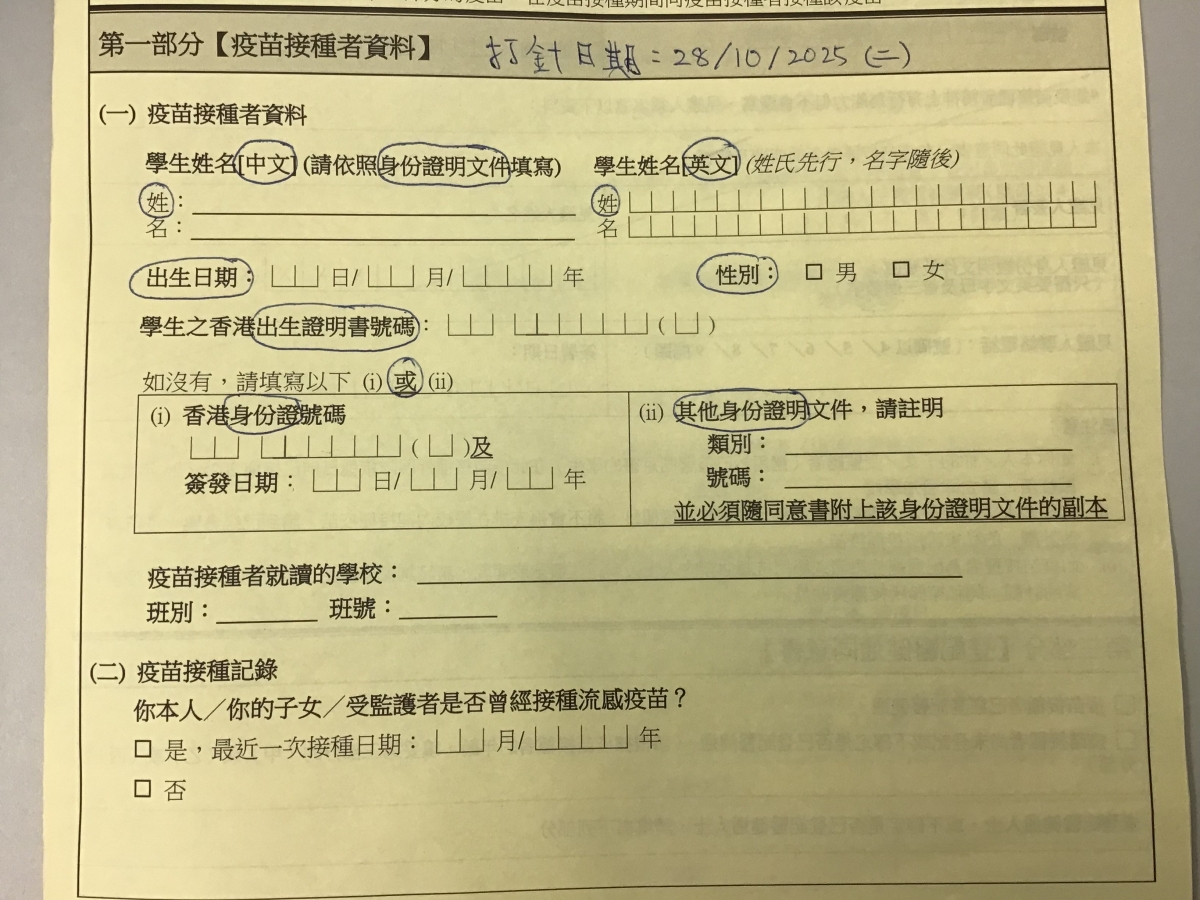 第一部分【疫苗接種者資料】 打針日期：28/10/2025 (二)
(一) 疫苗接種者資料
學生姓名[中文] (請依照身份證明文件填寫) 學生姓名[英文] (姓氏先行，名字隨後)
姓： 姓
名： 名
出生日期： 日/ 月/ 年 性別： □ 男 □ 女
學生之香港出生證明書號碼： ( )
如沒有，請填寫以下 (i) 或 (ii)
(i) 香港身份證號碼
( )及
簽發日期： 日/ 月/ 年
(ii) 其他身份證明文件，請註明
類別：
號碼：
並必須隨同意書附上該身份證明文件的副本
疫苗接種者就讀的學校：
班別： 班號：
(二) 疫苗接種記錄
你本人／你的子女／受監護者是否曾經接種流感疫苗？
□ 是，最近一次接種日期： 月/ 年
□ 否